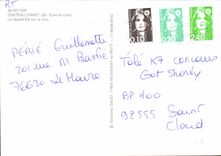 28.007.028
CHATEAU D'ANET (28 - Eure et Loire)
La façade Est sur la cour.
0,10
2,40
PERIÉ Guillemette
201 rue M Bastié
76620 Le Havre
Télé K7 concours
Got Showly
BP 400
92555 Saint
Cloud